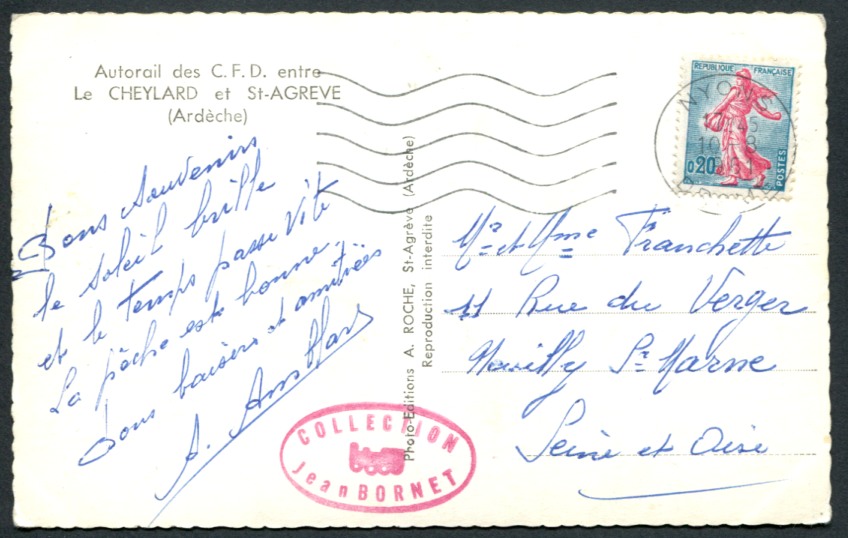 Autorail des C.F.D. entre
Le CHEYLARD et St-AGREVE
(Ardèche)
Bons Souvenirs
le soleil brille
et le temps passe vite
La pêche est bonne.
bons baisers et amitiées
A.
REPUBLIQUE FRANÇAISE
0,20
POSTES
NYONS
10-8
Mr et Mme Franchette
11 Rue du Verger
Neuilly Sr Marne
Seine et Oise
Photo-Editions A. ROCHE, St-Agrève (Ardèche)
Reproduction interdite
COLLECTION
Jean BORNET